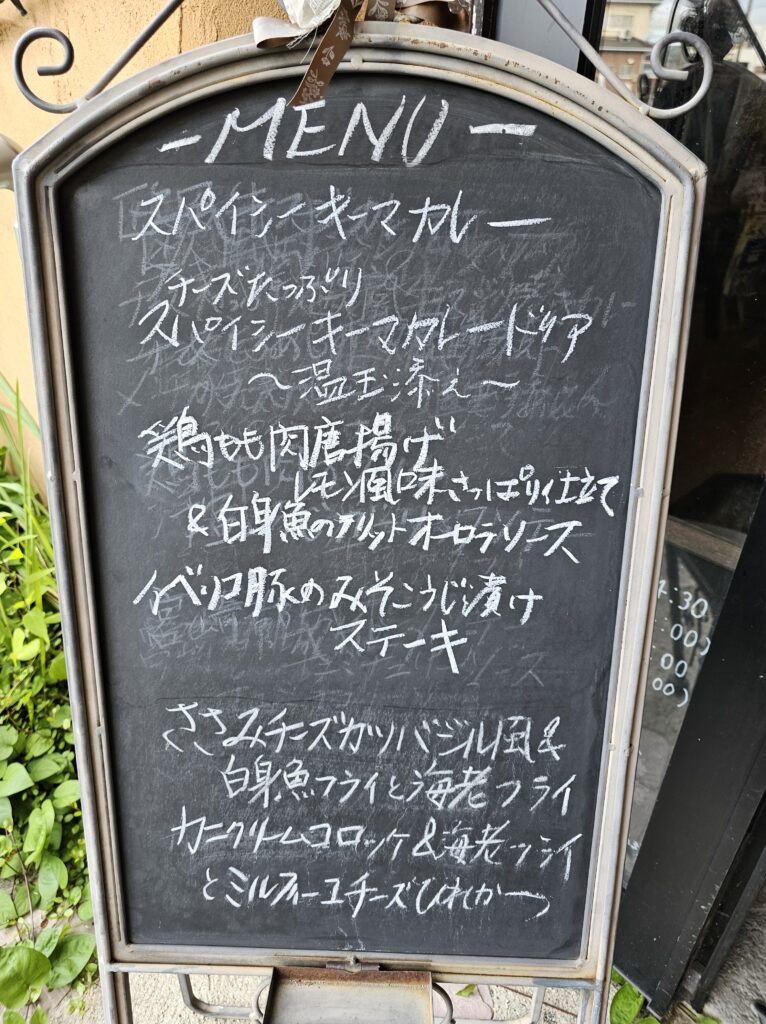 -MENU-
スパイシーキーマカレー
チーズたっぷり
スパイシーキーマカレードリア
～温玉添え～
鶏もも肉唐揚げ
レモン風味さっぱり仕立て
&白身魚のフリットオーロラソース
イベリコ豚のみそこうじ漬け
ステーキ
ささみチーズカツバジル風&
白身魚フライと海老フライ
カニクリームコロッケ&海老フライ
とミルフィーユチーズひれかつ
:30
:00)
:00
00)